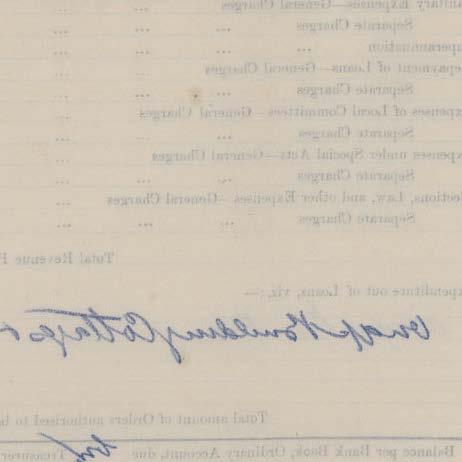 anitary Expenses—General Charges ... ...
Separate Charges ... ...
perannuation ... ... ...
epayment of Loans—General Charges ...
Separate Charges ... ...
xpenses of Local Committees—General Charges ...
Separate Charges ... ...
xpenses under Special Acts—General Charges ...
Separate Charges ... ...
lections, Law, and other Expenses—General Charges ...
Separate Charges ... ... ...
Total Revenue E
xpenditure out of Loans, viz.:—
Cottages
Total amount of Orders authorised to be
Balance per Bank Book, Ordinary Account, due
Treasurer